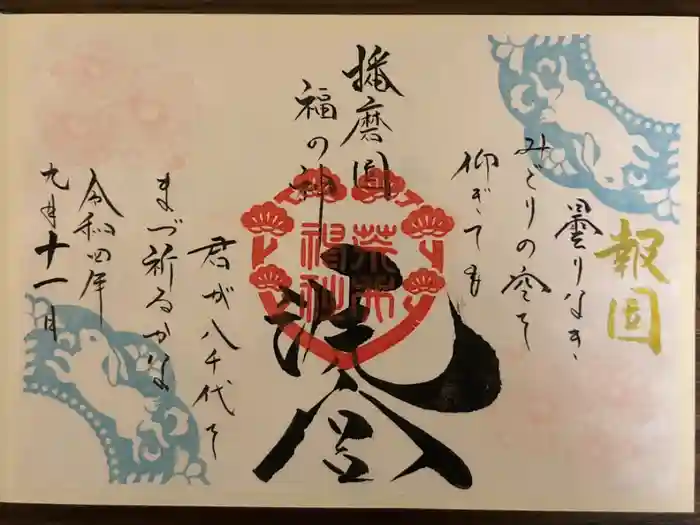 報国
曇りなき
みどりの空を
仰ぎても
播磨国
福の神
荒井
神社
洗宮
君が八千代を
まづ祈るかな
令和四年
九月十一日